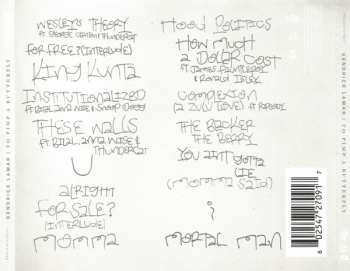 WESLEY'S THEORY
FT GEORGE CLINTON & THUNDERCAT
FOR FREE? (INTERLUDE)
KING KUNTA
INSTITUTIONALIZED
FT BILAL, ANNA WISE & SNOOP DOGG
THESE WALLS
FT. BILAL, ANNA WISE &
THUNDERCAT
U
ALRIGHT
FOR SALE?
(INTERLUDE)
MOMMA
HOOD POLITICS
HOW MUCH
A DOLLAR COST
FT JAMES FAUNTLEROY
& RONALD ISLEY
COMPLEXION
(A ZULU LOVE) FT RAPSODY
THE BLACKER
THE BERRY
YOU AIN'T GOTTA
LIE
(MOMMA SAID)
i
MORTAL MAN
KENDRICK LAMAR / TO PIMP A BUTTERFLY
KENDRICK LAMAR / TO PIMP A BUTTERFLY
6 02547 27091 7